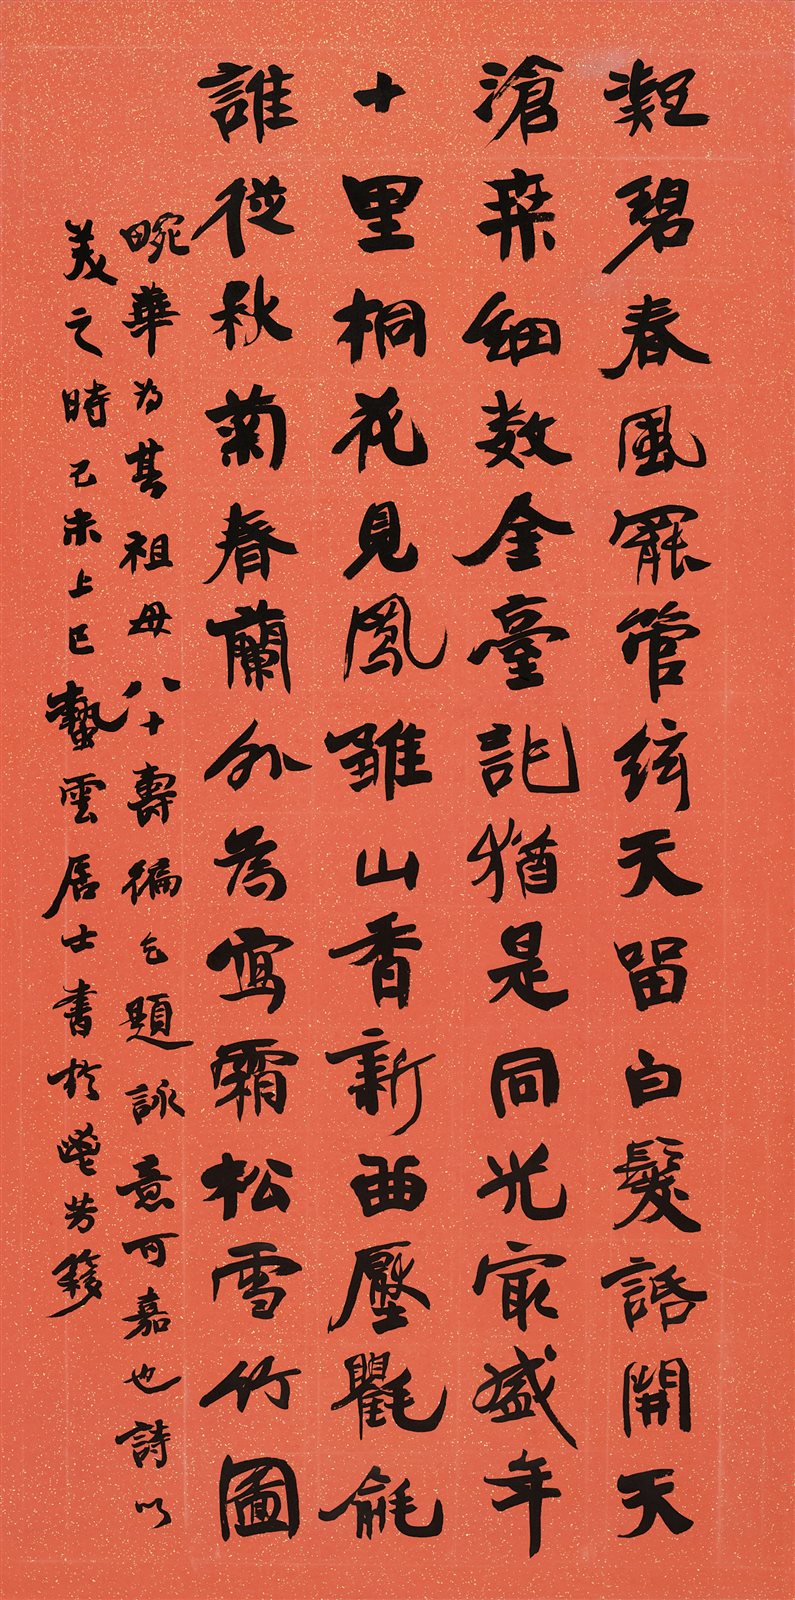 凝碧春風罷管絃天留白髮話開天
滄桒細数金臺記猶是同光冣盛年
十里桐花見鳳雛山香新曲壓氍毹
誰從秋菊春蘭外為寫霜松雪竹圖
畹華為其祖母八十壽徧乞題詠意可嘉也詩以
美之時己未上巳蟄雲居士書於芳簃